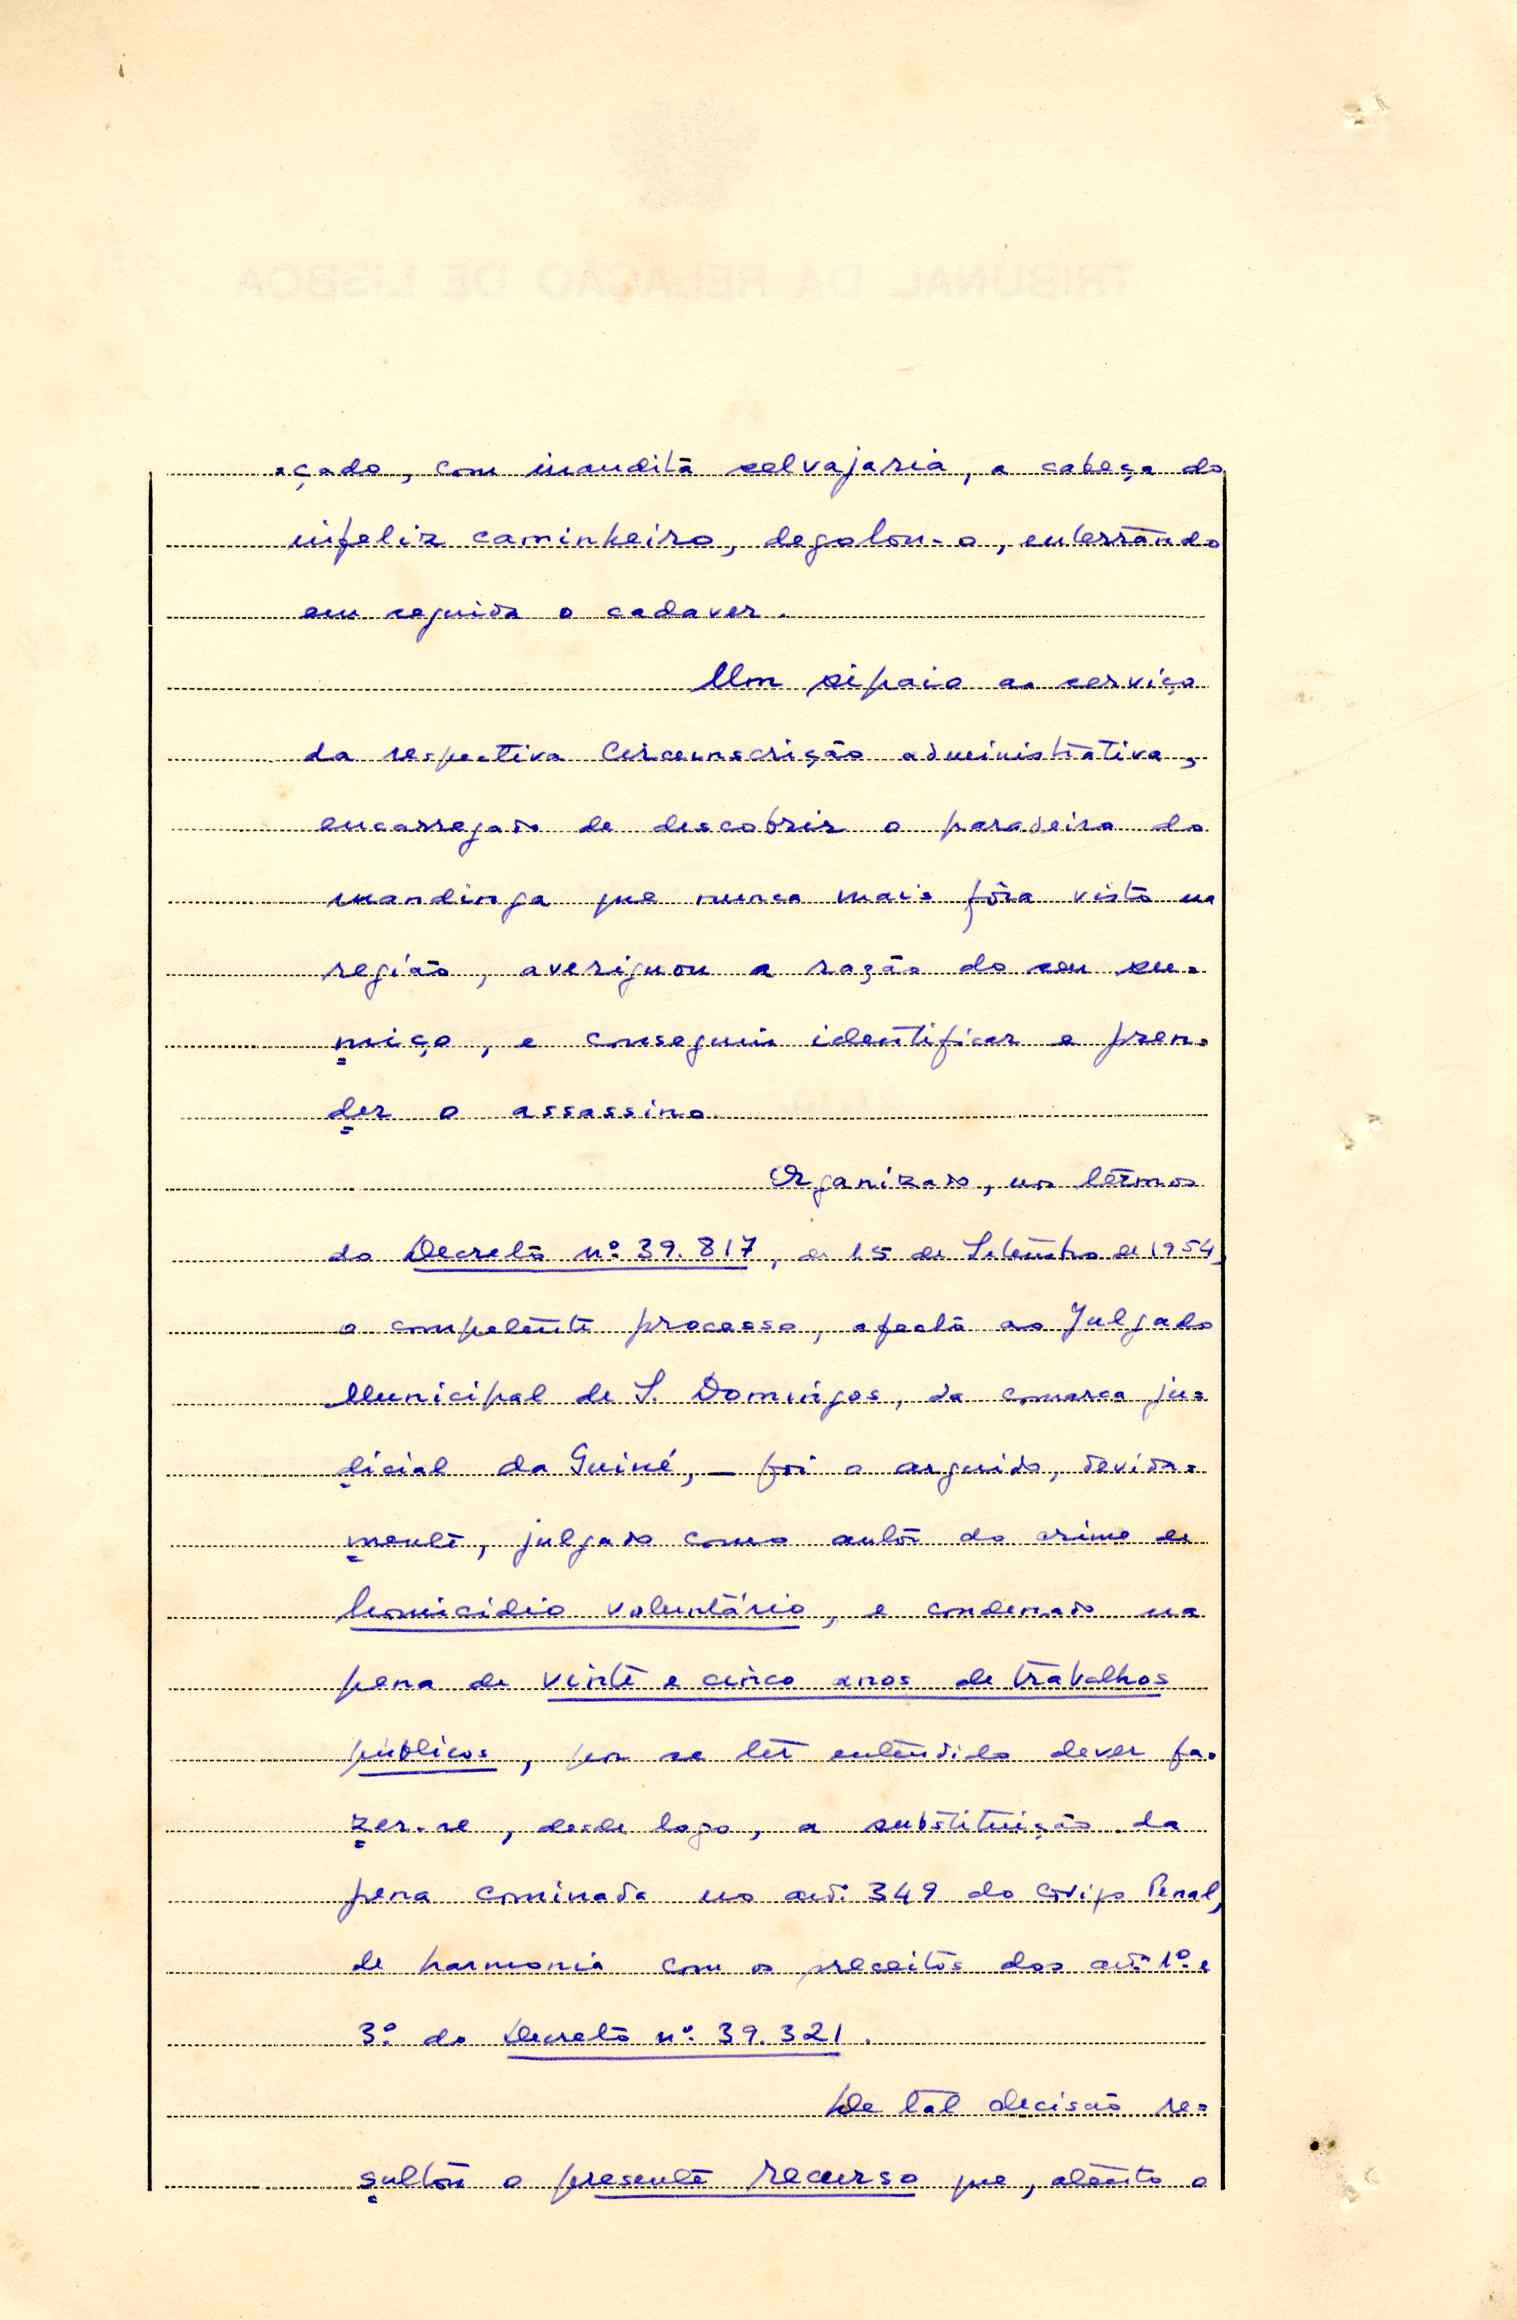 TRIBUNAL DA RELAÇÃO DE LISBOA
-çado, com inaudita selvajaria, a cabeça do
infeliz caminheiro, degolou-o, enterrando
em seguida o cadaver.
Um sipaio ao serviço
da respectiva Circunscrição administrativa,
encarregado de descobrir o paradeiro do
mandinga que nunca mais fôra visto na
região, averiguou a razão do seu su-
miço, e conseguiu identificar e pren-
der o assassino.
Organizado, nos têrmos
do Decreto nº 39.817, de 15 de Setembro de 1954,
o competente processo, afecto ao Julgado
Municipal de S. Domingos, da comarca ju-
dicial da Guiné, — foi o arguido, devida-
mente, julgado como autor do crime de
homicídio voluntário, e condenado na
pena de vinte e cinco anos de trabalhos
públicos, por se ter entendido dever fa-
zer-se, desde logo, a substituição da
pena cominada no artº 349 do Codigo Penal,
de harmonia com os preceitos dos artº 1º e
3º do Decreto nº 39.321.
De tal decisão re-
sultou o presente recurso que, atento o